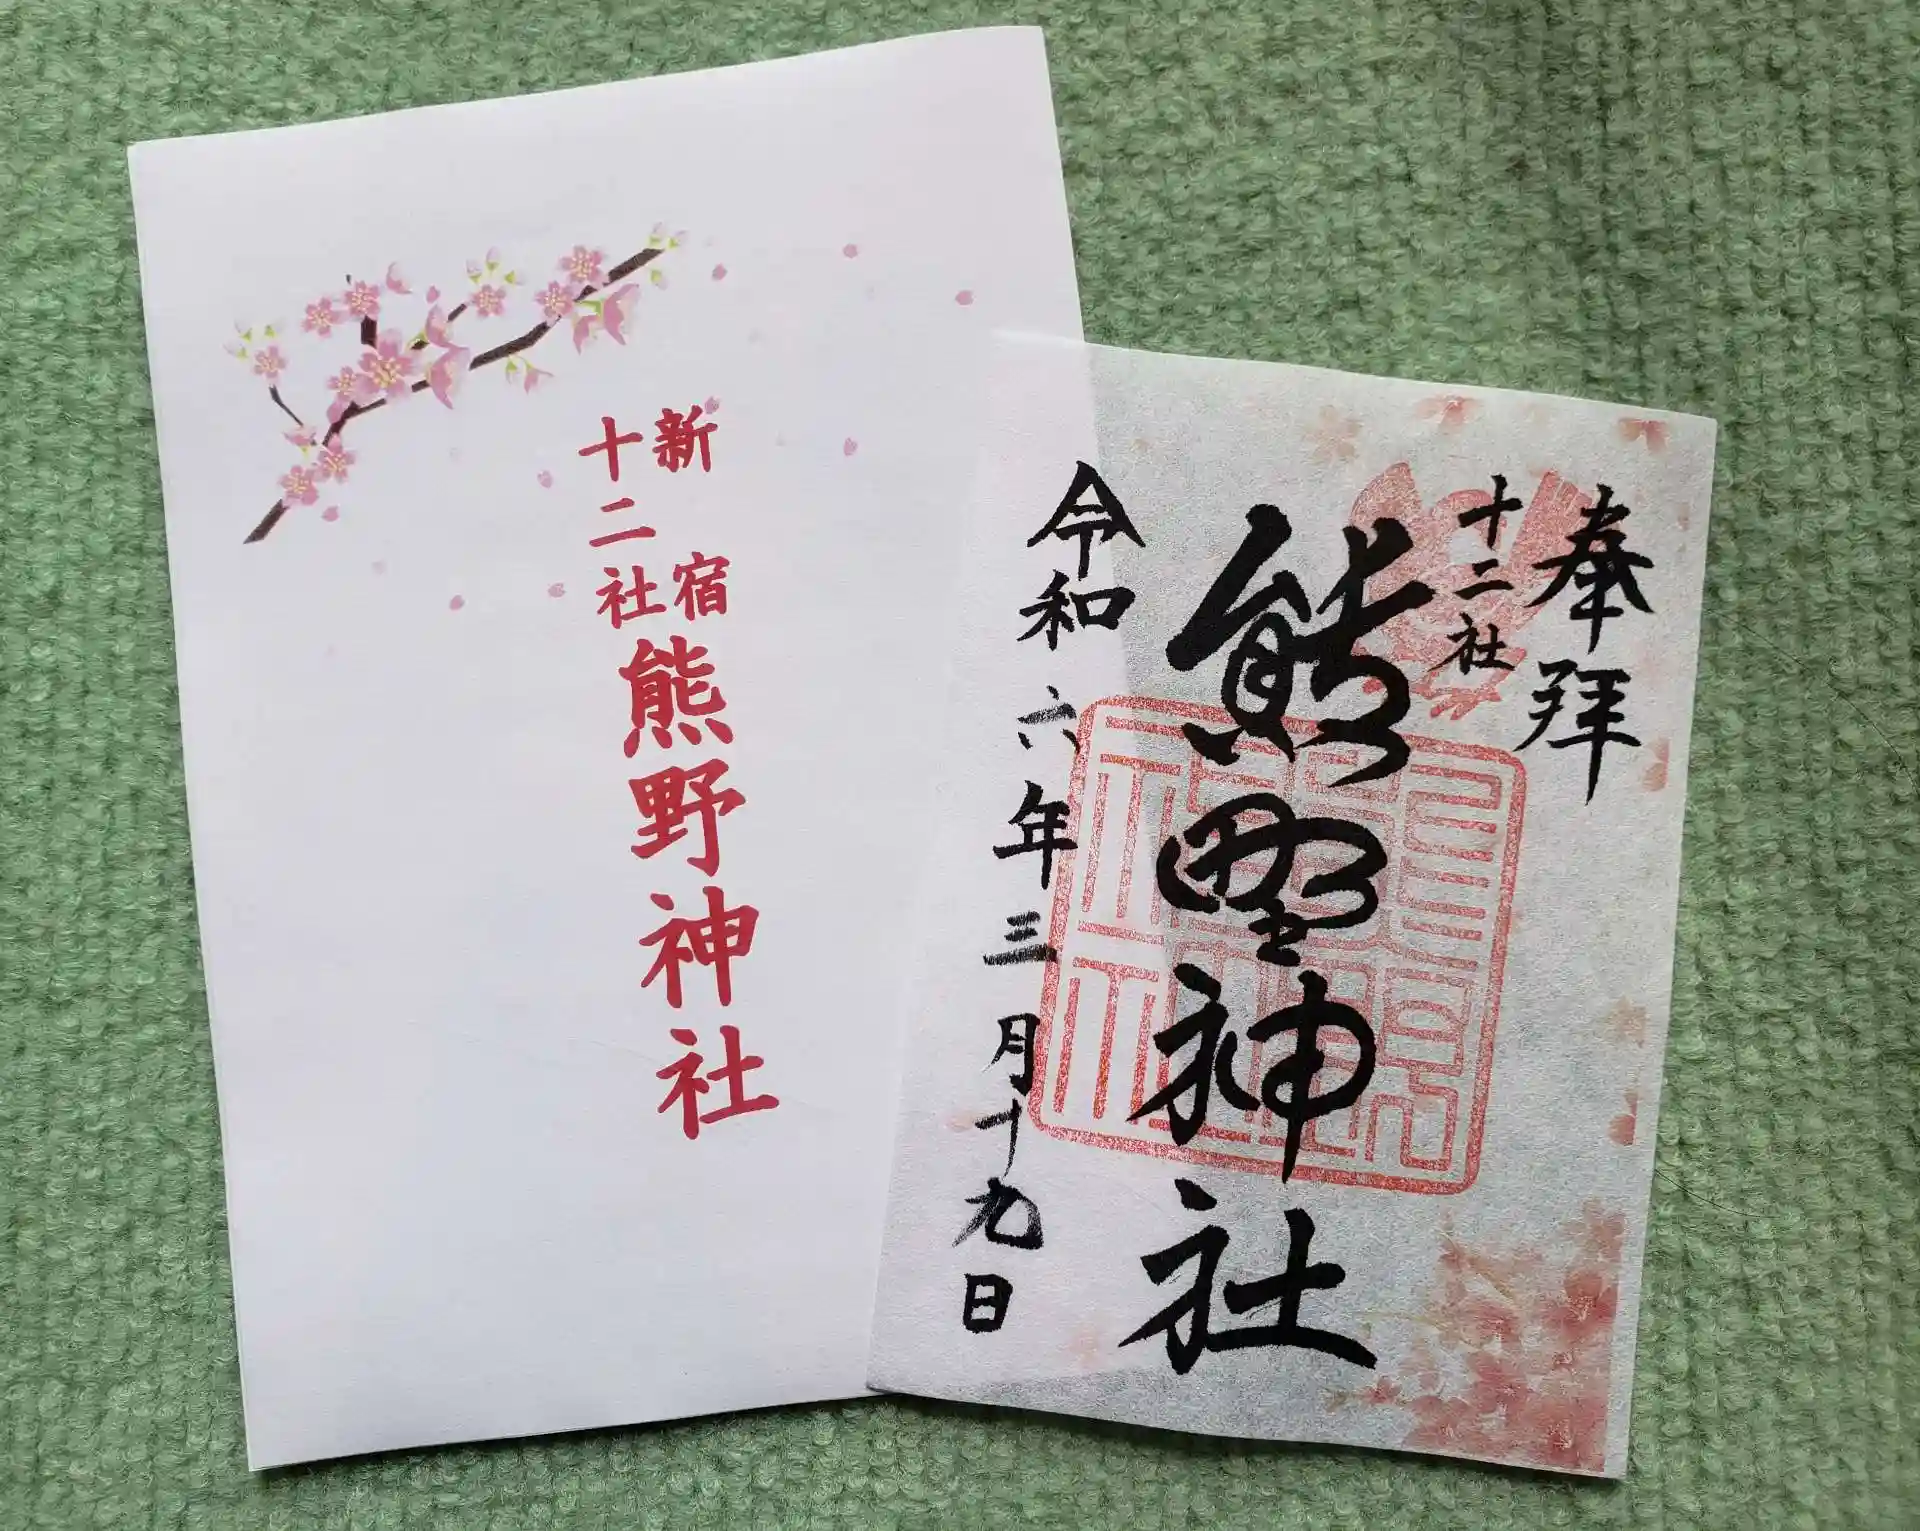 新宿
十二社
熊野神社
奉拝
十二社
熊野神社
令和六年三月十九日